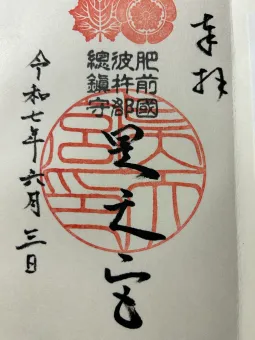 奉拝
肥前國
彼杵郡
總鎮守
昊天宮
令和七年六月三日